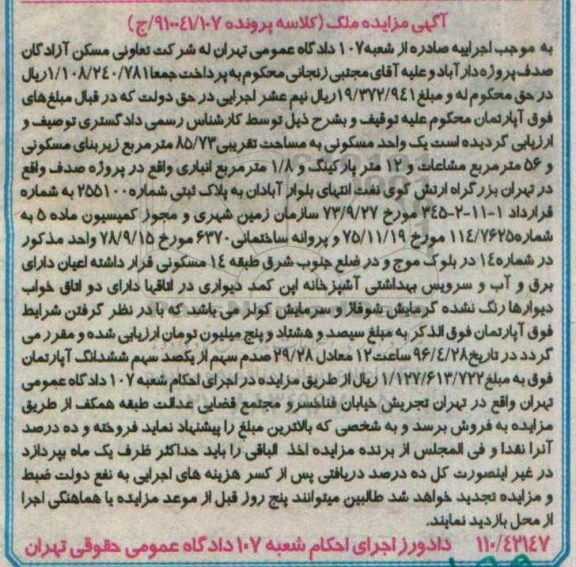 آگهی مزایده ملک (کلاسه پرونده ۹۱۰۰۴۱/۱۰۷/ج)
به موجب اجراییه صادره از شعبه۱۰۷ دادگاه عمومی تهران له شرکت تعاونی مسکن آزادگان
صدف پروژه دارآباد و علیه آقای مجتبی زنجانی محکوم به پرداخت جمعا۱/۱۰۸/۲۴۰/۷۸۱ریال
در حق محکوم له و مبلغ۱۹/۳۷۲/۹۴۱ریال نیم عشر اجرایی در حق دولت که در قبال مبلغ های
فوق آپارتمان محکوم علیه توقیف و بشرح ذیل توسط کارشناس رسمی دادگستری توصیف و
ارزیابی گردیده است یک واحد مسکونی به مساحت تقریبی۸۵/۷۳ متر مربع زیربنای مسکونی
و ۵۶ متر مربع مشاعات و ۱۲ متر پارکینگ و ۱/۸ متر مربع انباری واقع در پروژه صدف واقع
در تهران بزرگراه ارتش کوی نفت انتهای بلوار آبادان به پلاک ثبتی شماره۲۵۵۱۰۰ به شماره
قرارداد ۱-۱۱-۲-۳۴۵ مورخ ۷۳/۹/۲۷ سازمان زمین شهری و مجوز کمیسیون ماده ۵ به
شماره۱۱۴/۷۶۲۵ مورخ ۷۵/۱۱/۱۹ و پروانه ساختمانی۶۳۷۰ مورخ ۷۸/۹/۱۵ واحد مذکور
در شماره۱۴ در بلوک موج و در ضلع جنوب شرق طبقه ۱۴ مسکونی قرار داشته اعیان دارای
برق و آب و سرویس بهداشتی آشپزخانه اپن کمد دیواری در اتاقها دارای دو اتاق خواب
دیوارها رنگ نشده گرمایش شوفاژ و سرمایش کولر می باشد که با در نظر گرفتن شرایط
فوق آپارتمان فوق الذکر به مبلغ سیصد و هشتاد و پنج میلیون تومان ارزیابی شده و مقرر می
گردد در تاریخ۹۶/۴/۲۸ ساعت۱۲ معادل ۲۹/۲۸ صدم سهم از یکصد سهم ششدانگ آپارتمان
فوق به مبلغ۱/۱۲۷/۶۱۳/۷۲۲ ریال از طریق مزایده در اجرای احکام شعبه ۱۰۷ دادگاه عمومی
تهران واقع در تهران تجریش خیابان فناخسرو مجتمع قضایی عدالت طبقه همکف از طریق
مزایده به فروش برسد و به شخصی که بالاترین مبلغ را پیشنهاد نماید فروخته و ده درصد
آنرا نقدا و فی المجلس از برنده مزایده اخذ الباقی را باید حداکثر ظرف یک ماه بپردازد
در غیر اینصورت کل ده درصد دریافتی پس از کسر هزینه های اجرایی به نفع دولت ضبط
و مزایده تجدید خواهد شد طالبین میتوانند پنج روز قبل از موعد مزایده با هماهنگی اجرا
از محل بازدید نمایند.
۱۱۰/۴۲۱۴۷ دادورز اجرای احکام شعبه ۱۰۷ دادگاه عمومی حقوقی تهران